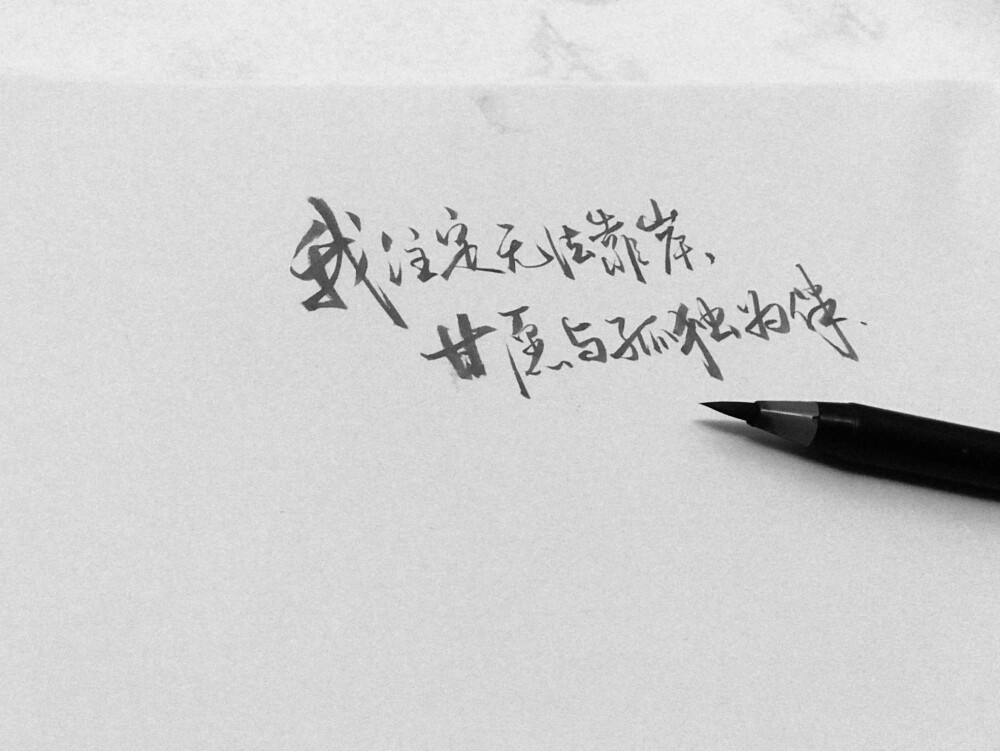 我注定无法靠岸、
甘愿与孤独为伴.